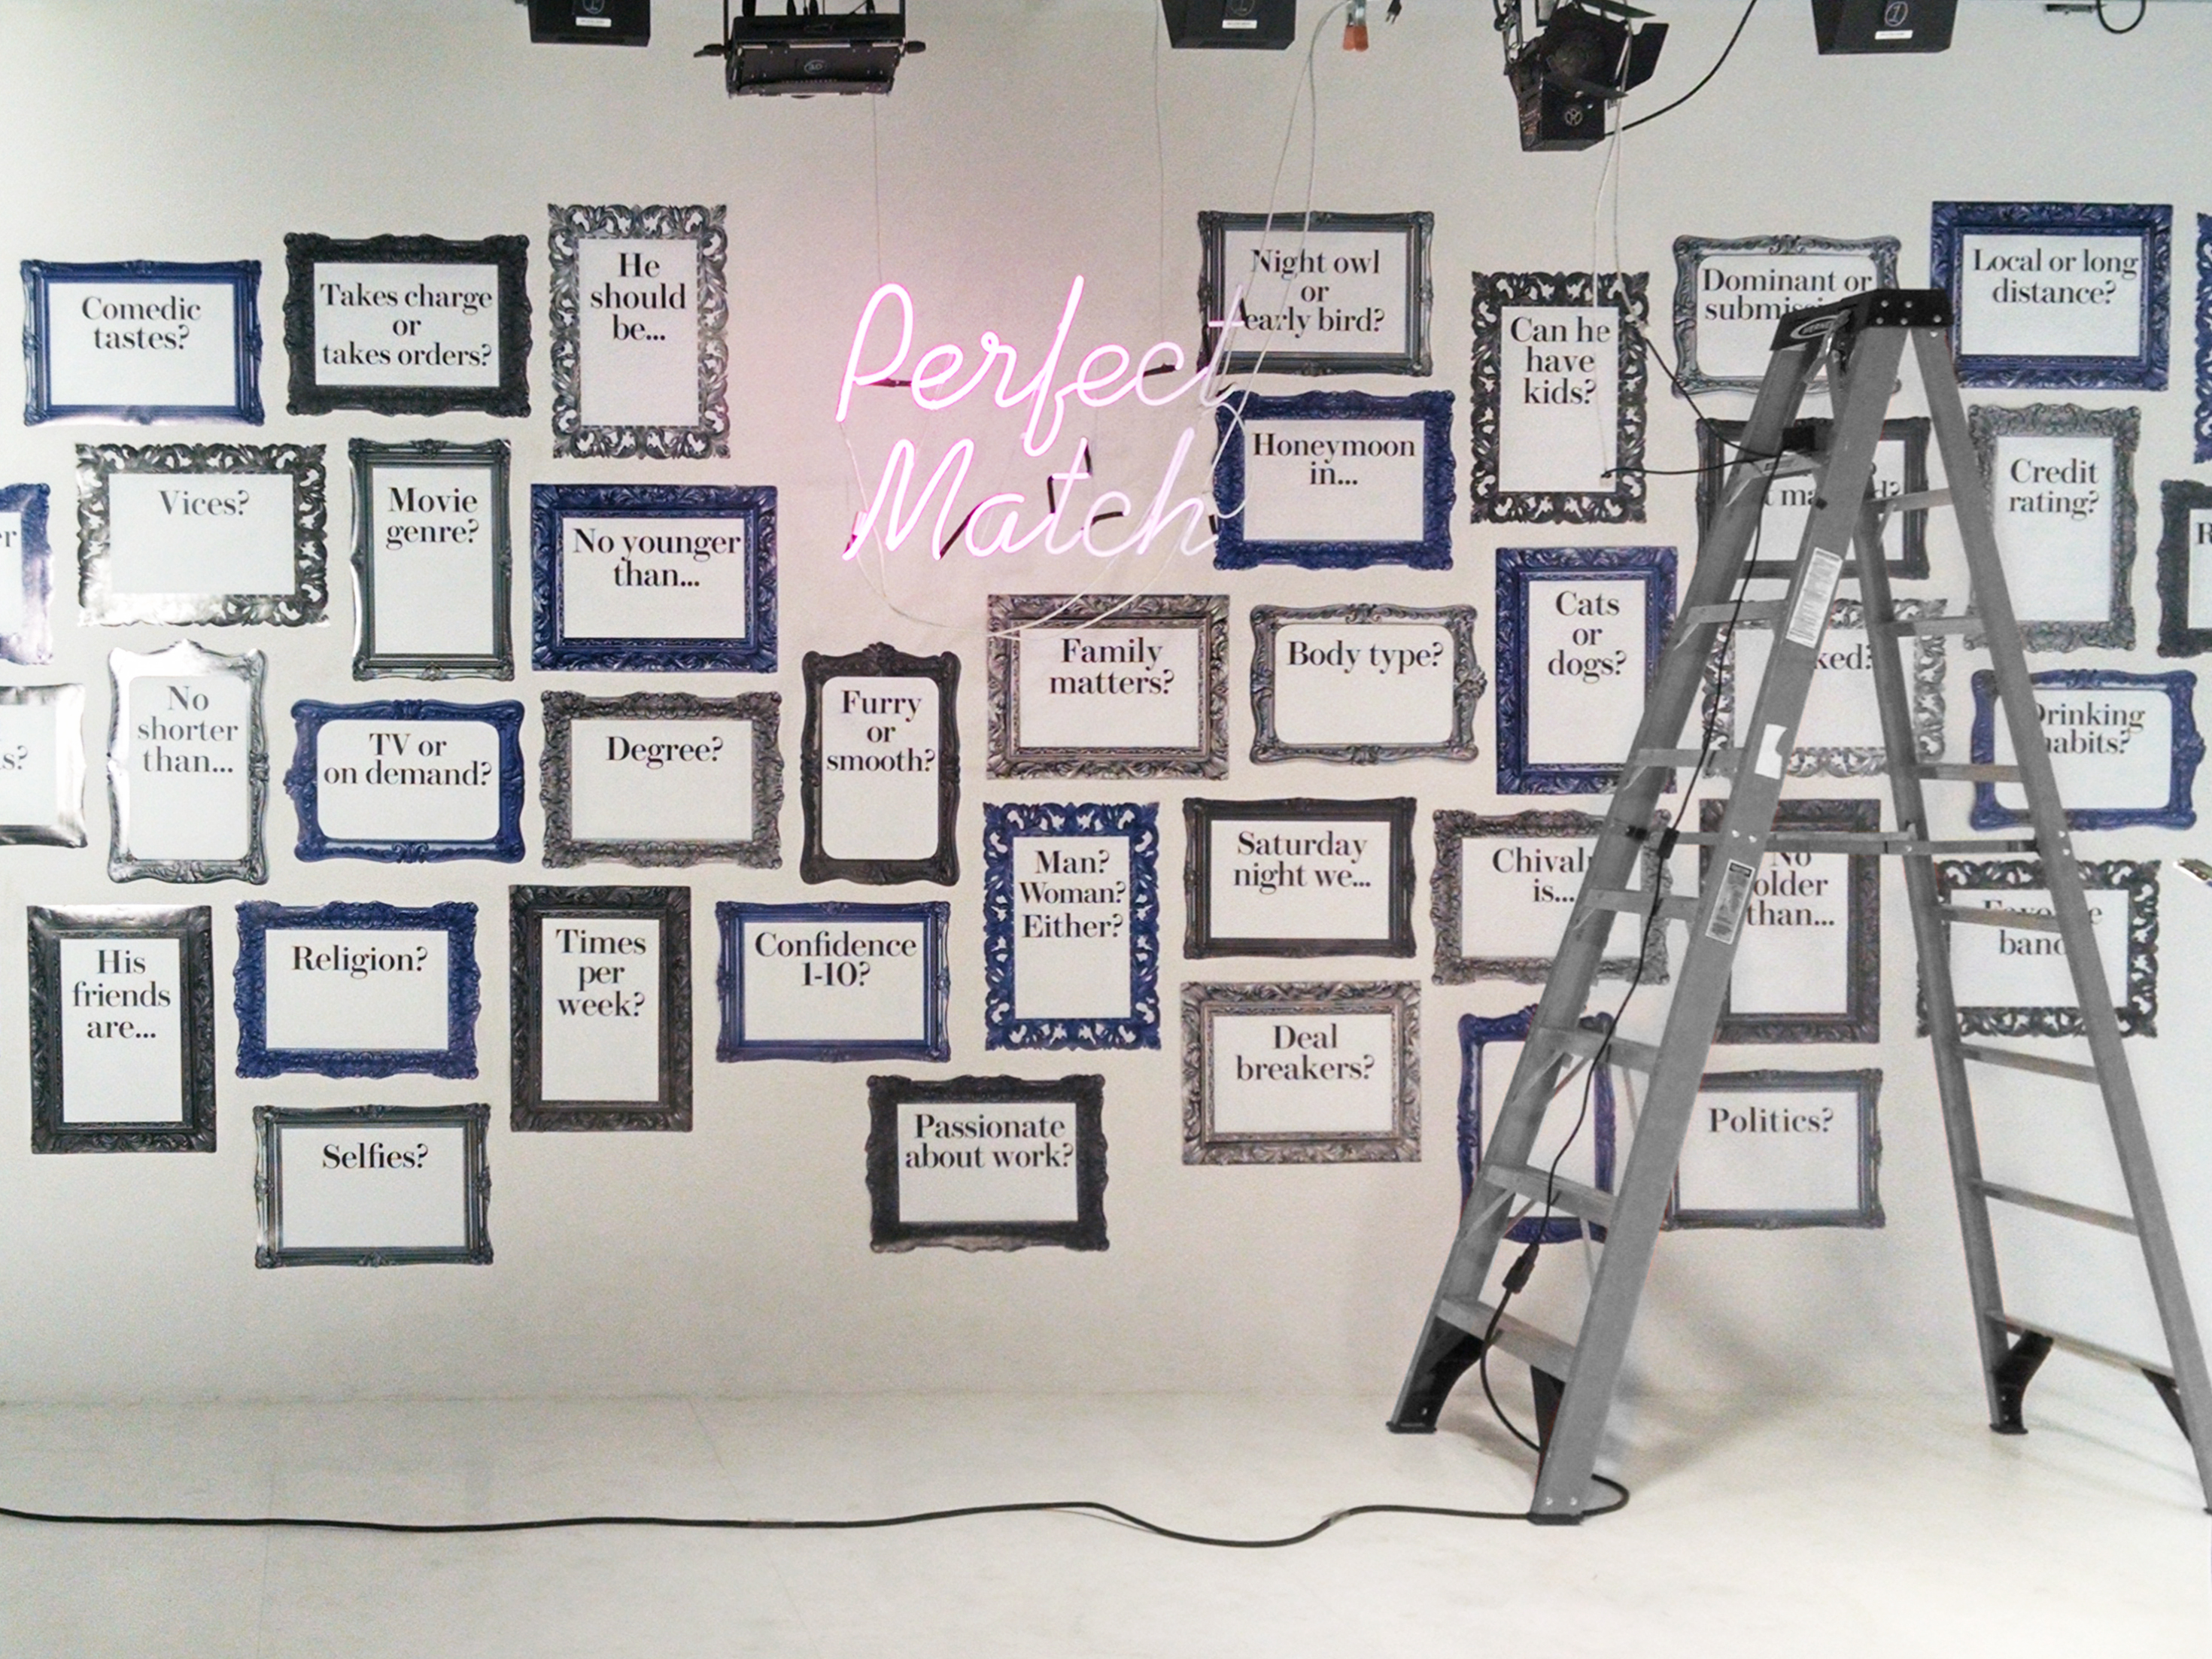 Perfect
Match
Comedic
tastes?
Takes charge
or
takes orders?
He
should
be...
Night owl
or
early bird?
Can he
have
kids?
Dominant or
Local or long
distance?
Vices?
Movie
genre?
No younger
than...
Honeymoon
in...
Credit
rating?
No
shorter
than...
TV or
on demand?
Degree?
Furry
or
smooth?
Family
matters?
Body type?
Cats
or
dogs?
Drinking
habits?
His
friends
are...
Religion?
Times
per
week?
Confidence
1-10?
Man?
Woman?
Either?
Saturday
night we...
is...
No
older
than...
Selfies?
Passionate
about work?
Deal
breakers?
Politics?